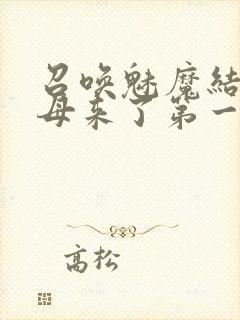 召唤魅魔結
母来了第一
高松